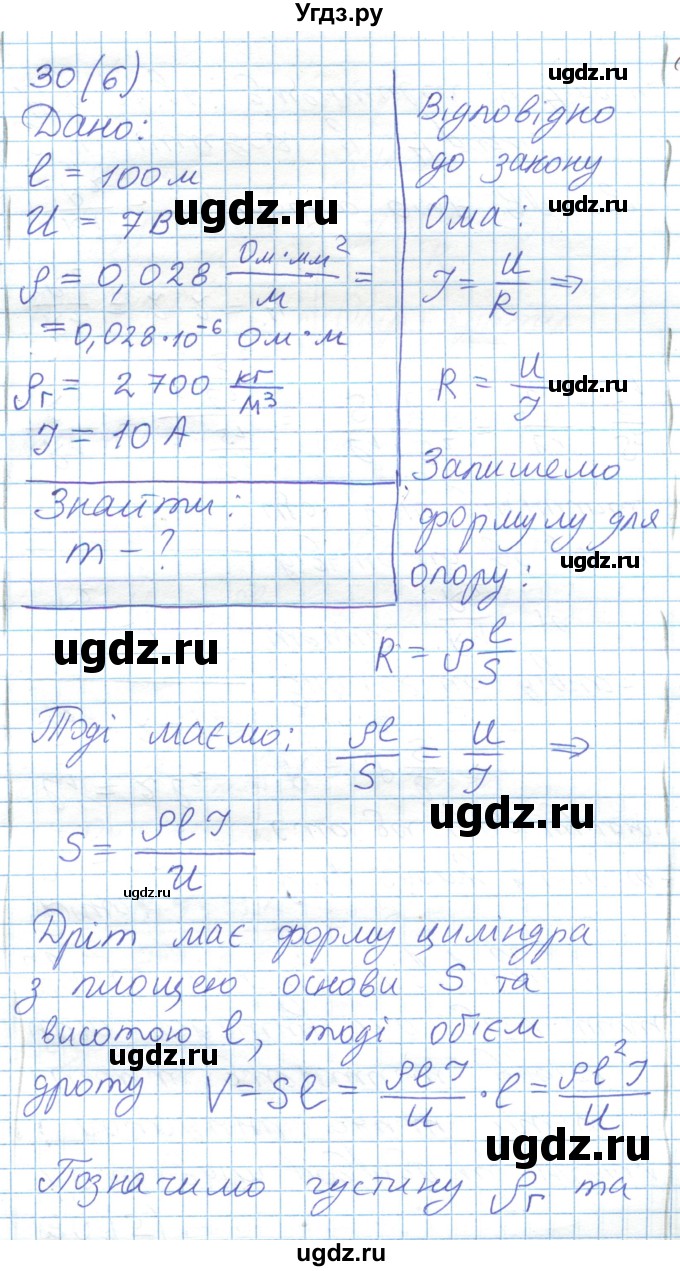 Угдз.ру
30(6)
Дано:
l = 100м
U = 7В
ρ = 0,028 Ом·мм²/м =
= 0,028·10⁻⁶ Ом·м
ρг = 2 700 кг/м³
I = 10 А
Знайти:
m - ?
Відповідно
до закону
Ома:
I = U/R ⇒
R = U/I
Запишемо
формулу для
опору:
R = ρ l/S
Тоді маємо: ρl/S = U/I ⇒
S = ρlI/U
Дріт має форму циліндра
з площею основи S та
висотою l, тоді об'єм
дроту V = Sl = ρlI/U · l = ρl²I/U
Позначимо густину ρг та
ugdz.ru
ugdz.ru
ugdz.ru
ugdz.ru
ugdz.ru
ugdz.ru
ugdz.ru
ugdz.ru
ugdz.ru
ugdz.ru
ugdz.ru
ugdz.ru